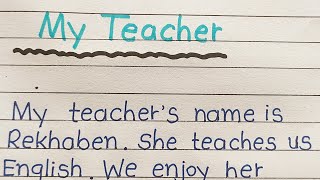 My Teacher
My teacher's name is
Rekhaben. She teaches us
English. We enjoy her